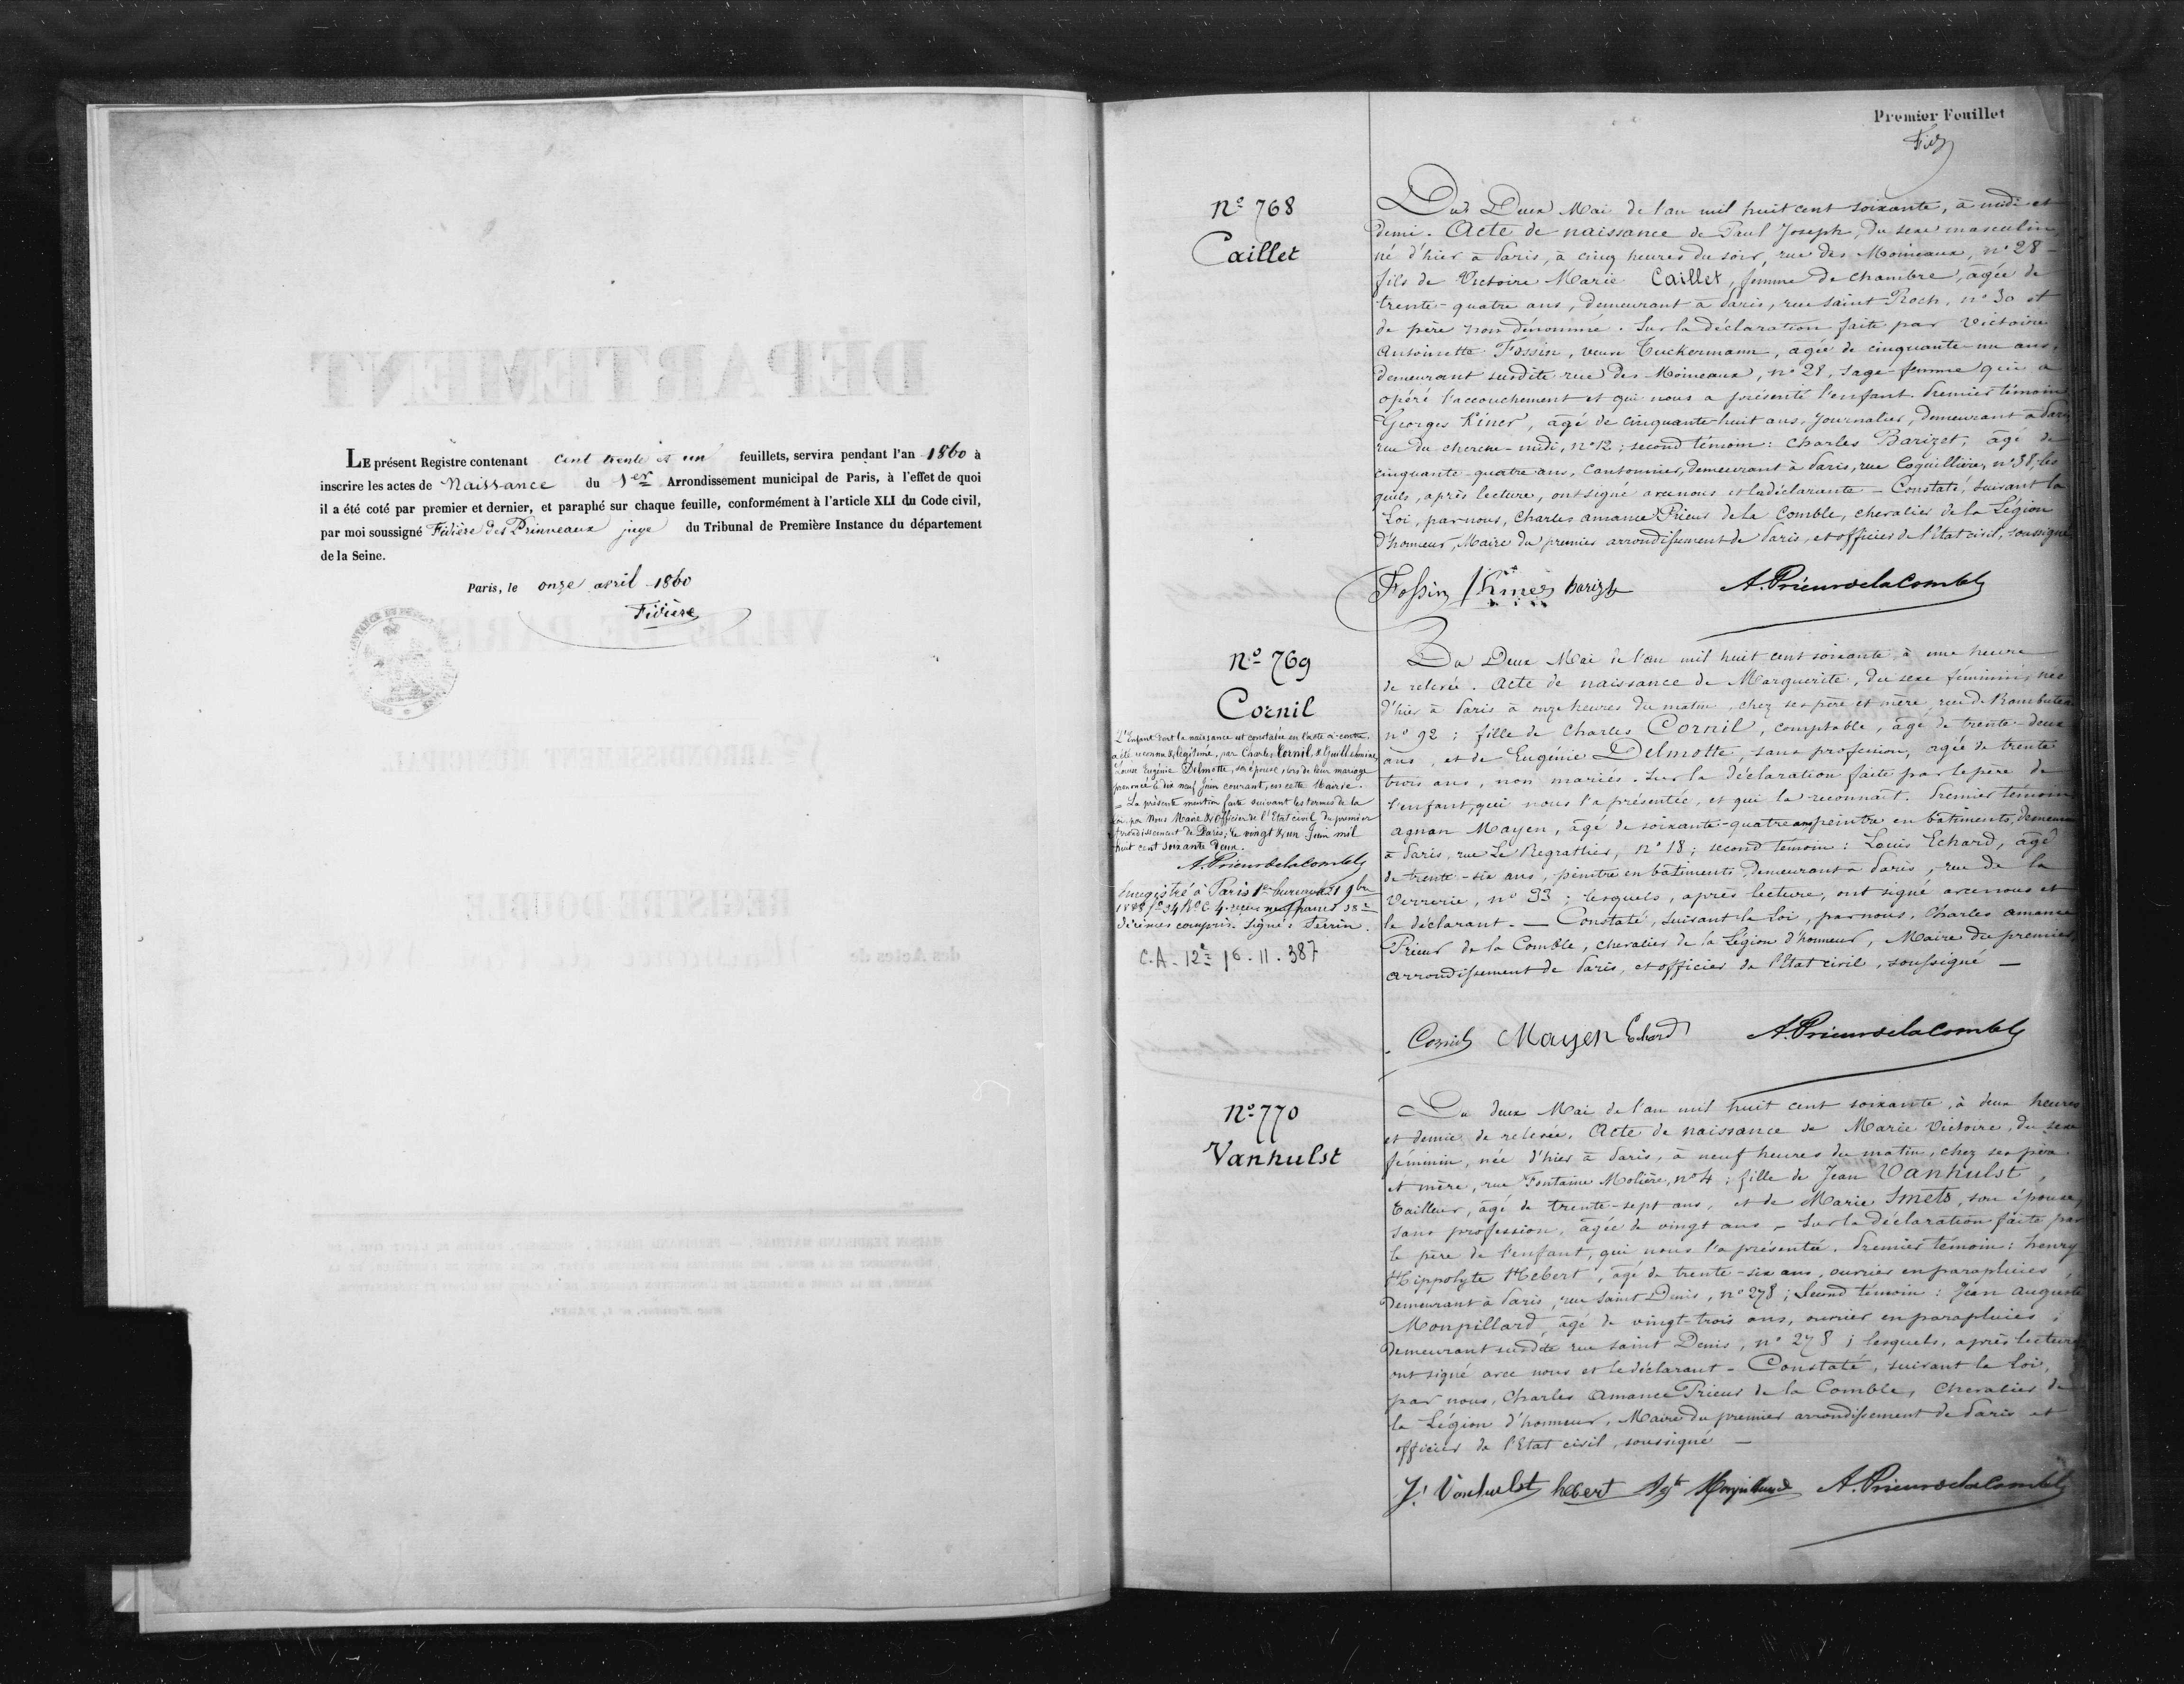 LE présent Registre contenant Cent trente et un feuillets, servira pendant l'an 1860 à
inscrire les actes de Naissance du 1er Arrondissement municipal de Paris, à l'effet de quoi
il a été coté par premier et dernier, et paraphé sur chaque feuille, conformément à l'article XLI du Code civil,
par moi soussigné Fidière des Prinveaux juge du Tribunal de Première Instance du département
de la Seine.
Paris, le onze avril 1860
Fidière
Premier Feuillet
Nº 768
Caillet
Du Deux Mai de l'an mil huit cent soixante, à midi et
demi. Acte de naissance de Paul Joseph, du sexe masculin,
né d'hier à Paris, à cinq heures du soir, rue des Moineaux, nº 28 -
fils de Victoire Marie Caillet, femme de chambre, âgée de
trente-quatre ans, demeurant à Paris, rue Saint Roch, nº 30 et
de père non dénommé. Sur la déclaration faite par Victoire
Antoinette Fossin, veuve Tuckermann, âgée de cinquante-un ans,
demeurant susdite rue des Moineaux, nº 28, sage-femme qui a
opéré l'accouchement et qui nous a présenté l'enfant. Premier témoin
Georges Kiner, âgé de cinquante-huit ans, journalier, demeurant à Paris
rue du cherche-midi, nº 12; second témoin: Charles Barizet, âgé de
cinquante-quatre ans, Cantonnier, demeurant à Paris, rue Coquillière, nº 38, les
quels, après lecture, ont signé avec nous et la déclarante - Constaté, suivant la
Loi, par nous, Charles Amance Prieur de la Comble, chevalier de la Légion
d'honneur, Maire du premier arrondissement de Paris, et officier de l'Etat civil, soussigné
Fossin Kiner Barizet A. Prieur de la Comble
Nº 769
Cornil
L'Enfant dont la naissance est constatée en l'acte ci-contre,
a été reconnu & légitimé, par Charles Cornil, & Guillelmine
Louise Eugénie Delmotte, son épouse, lors de leur mariage
prononcé le dix neuf Juin courant, en cette Mairie.
- La présente mention faite suivant les termes de la
loi, par Nous Maire & Officier de l'Etat civil du premier
arrondissement de Paris, le vingt & un Juin mil
huit cent soixante deux.
A. Prieur de la Comble
Enregistré à Paris 1er bureau le 21 9bre
fº 94 Rº C 4. reçu neuf francs 38c
décimes compris. Signé: Perrin.
C.A. 12e 16.11.387
Du Deux Mai de l'an mil huit cent soixante, à une heure
de relevée. Acte de naissance de Marguerite, du sexe féminin, née
d'hier à Paris à onze heures du matin, chez ses père et mère, rue de Rambuteau
nº 92: fille de Charles Cornil, comptable, âgé de trente-deux
ans, et de Eugénie Delmotte, sans profession, âgée de trente
trois ans, non mariés. Sur la déclaration faite par le père de
l'enfant, qui nous l'a présentée, et qui la reconnaît. Premier témoin
Agnan Mayen, âgé de soixante-quatre ans peintre en bâtiments, demeurant
à Paris, rue Le Regrattier, nº 18; second témoin: Louis Echard, âgé
de trente-six ans, peintre en bâtiments, demeurant à Paris, rue de la
Verrerie, nº 33; lesquels, après lecture, ont signé avec nous et
le déclarant. - Constaté, suivant la Loi, par nous, Charles Amance
Prieur de la Comble, chevalier de la Légion d'honneur, Maire du premier
arrondissement de Paris, et officier de l'Etat civil, soussigné -
Cornil Mayen Echard A. Prieur de la Comble
Nº 770
Vanhulst
Du deux Mai de l'an mil huit cent soixante, à deux heures
et demie de relevée. Acte de naissance de Marie Victoire, du sexe
féminin, née d'hier à Paris, à neuf heures du matin, chez ses père
et mère, rue Fontaine Molière, nº 4; fille de Jean Vanhulst,
tailleur, âgé de trente-sept ans, et de Marie Smets, son épouse,
sans profession, âgée de vingt ans - Sur la déclaration faite par
le père de l'enfant, qui nous l'a présentée. Premier témoin: henry
Hippolyte Hebert, âgé de trente-six ans, ouvrier en parapluies,
demeurant à Paris, rue Saint Denis, nº 278; Second témoin: Jean Auguste
Monpillard, âgé de vingt-trois ans, ouvrier en parapluies,
demeurant susdite rue saint Denis, nº 278; lesquels, après lecture
ont signé avec nous et le déclarant - Constaté, suivant la loi,
par nous, Charles Amance Prieur de la Comble, Chevalier de
la Légion d'honneur, Maire du premier arrondissement de Paris et
officier de l'Etat civil, soussigné -
J. Vanhulst hebert Monpillard A. Prieur de la Comble